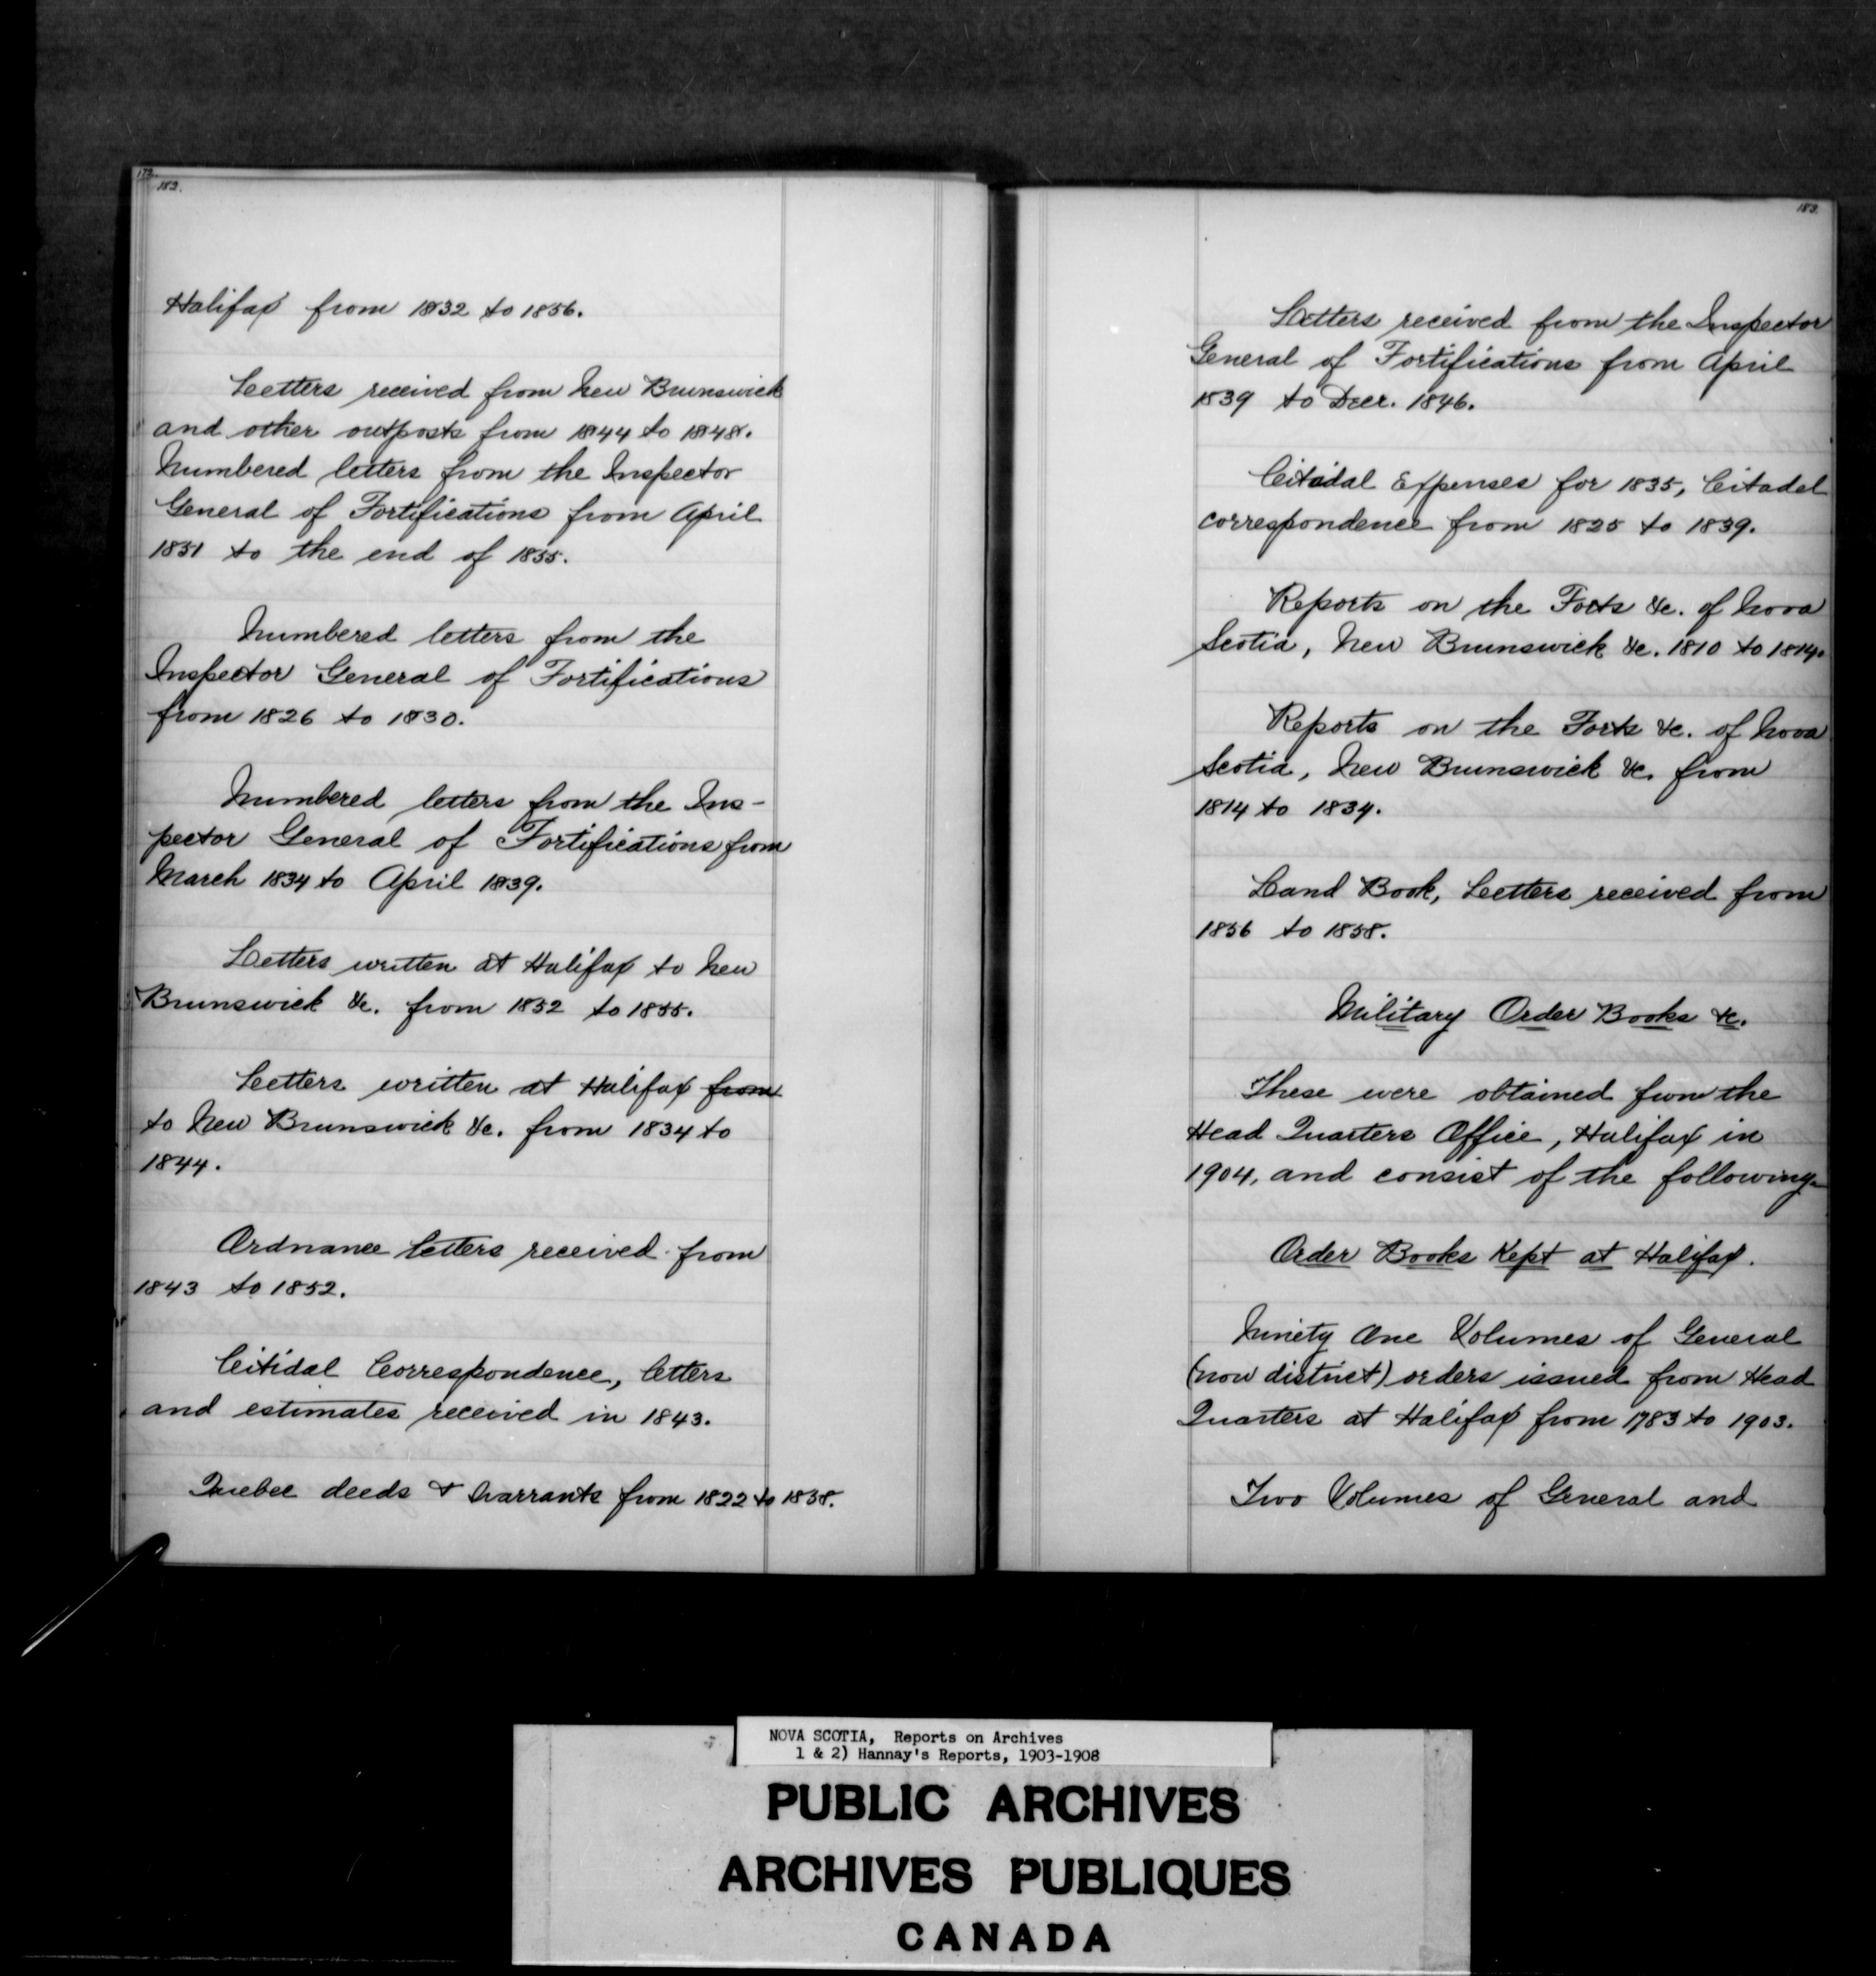 172.
182.
Halifax from 1832 to 1856.
Letters received from New Brunswick
and other outposts from 1844 to 1848.
Numbered letters from the Inspector
General of Fortifications from April
1851 to the end of 1855.
Numbered letters from the
Inspector General of Fortifications
from 1826 to 1830.
Numbered letters from the Ins-
pector General of Fortifications from
March 1834 to April 1839.
Letters written at Halifax to New
Brunswick &c. from 1852 to 1855.
Letters written at Halifax from
to New Brunswick &c. from 1834 to
1844.
Ordnance letters received from
1843 to 1852.
Citidal Correspondence, letters
and estimates received in 1843.
Quebec deeds & Warrants from 1822 to 1838.
183.
Letters received from the Inspector
General of Fortifications from April
1839 to Decr. 1846.
Citadal Expenses for 1835, Citadel
correspondence from 1825 to 1839.
Reports on the Forts &c. of Nova
Scotia, New Brunswick &c. 1810 to 1814.
Reports on the Forts &c. of Nova
Scotia, New Brunswick &c. from
1814 to 1834.
Land Book, Letters received from
1856 to 1858.
Military Order Books &c.
These were obtained from the
Head Quarters Office, Halifax in
1904, and consist of the following-
Order Books Kept at Halifax.
Ninety One Volumes of General
(now district) orders issued from Head
Quarters at Halifax from 1783 to 1903.
Two Volumes of General and
NOVA SCOTIA, Reports on Archives
1 & 2) Hannay's Reports, 1903-1908
PUBLIC ARCHIVES
ARCHIVES PUBLIQUES
CANADA